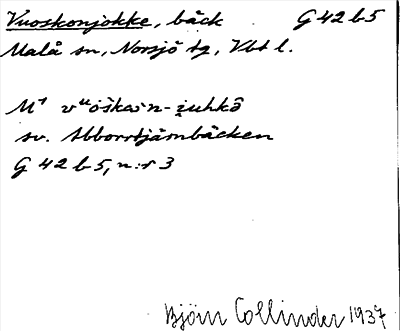 Vuoskonjokke, bäck G 42 b 5
Malå sn, Norsjö tg, Vbt l.
M¹ vᵘoškavn-i̯uhkō
sv. Abborrtjärnbäcken
G 42 b 5, n:r 3
Björn Collinder 1937